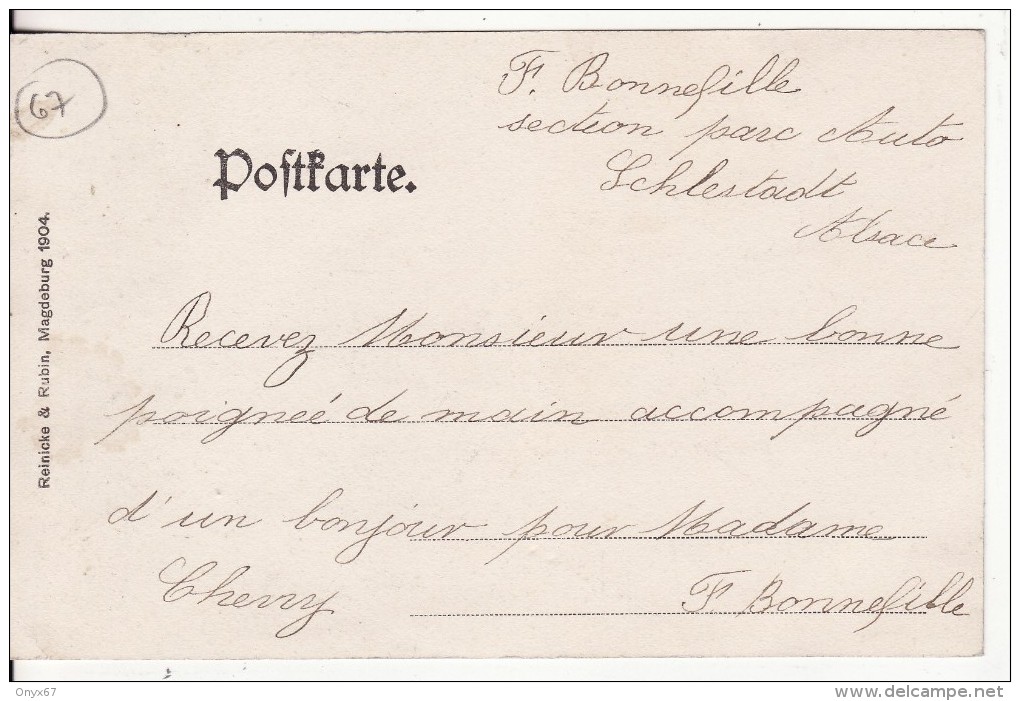 67
F. Bonnefille
section parc Auto
Schlestadt
Alsace
Postkarte.
Reinicke & Rubin, Magdeburg 1904.
Recevez Monsieur une bonne
poigneé de main accompagné
d'un bonjour pour Madame
Cherry
F Bonnefille
Onyx67
www.delcampe.net